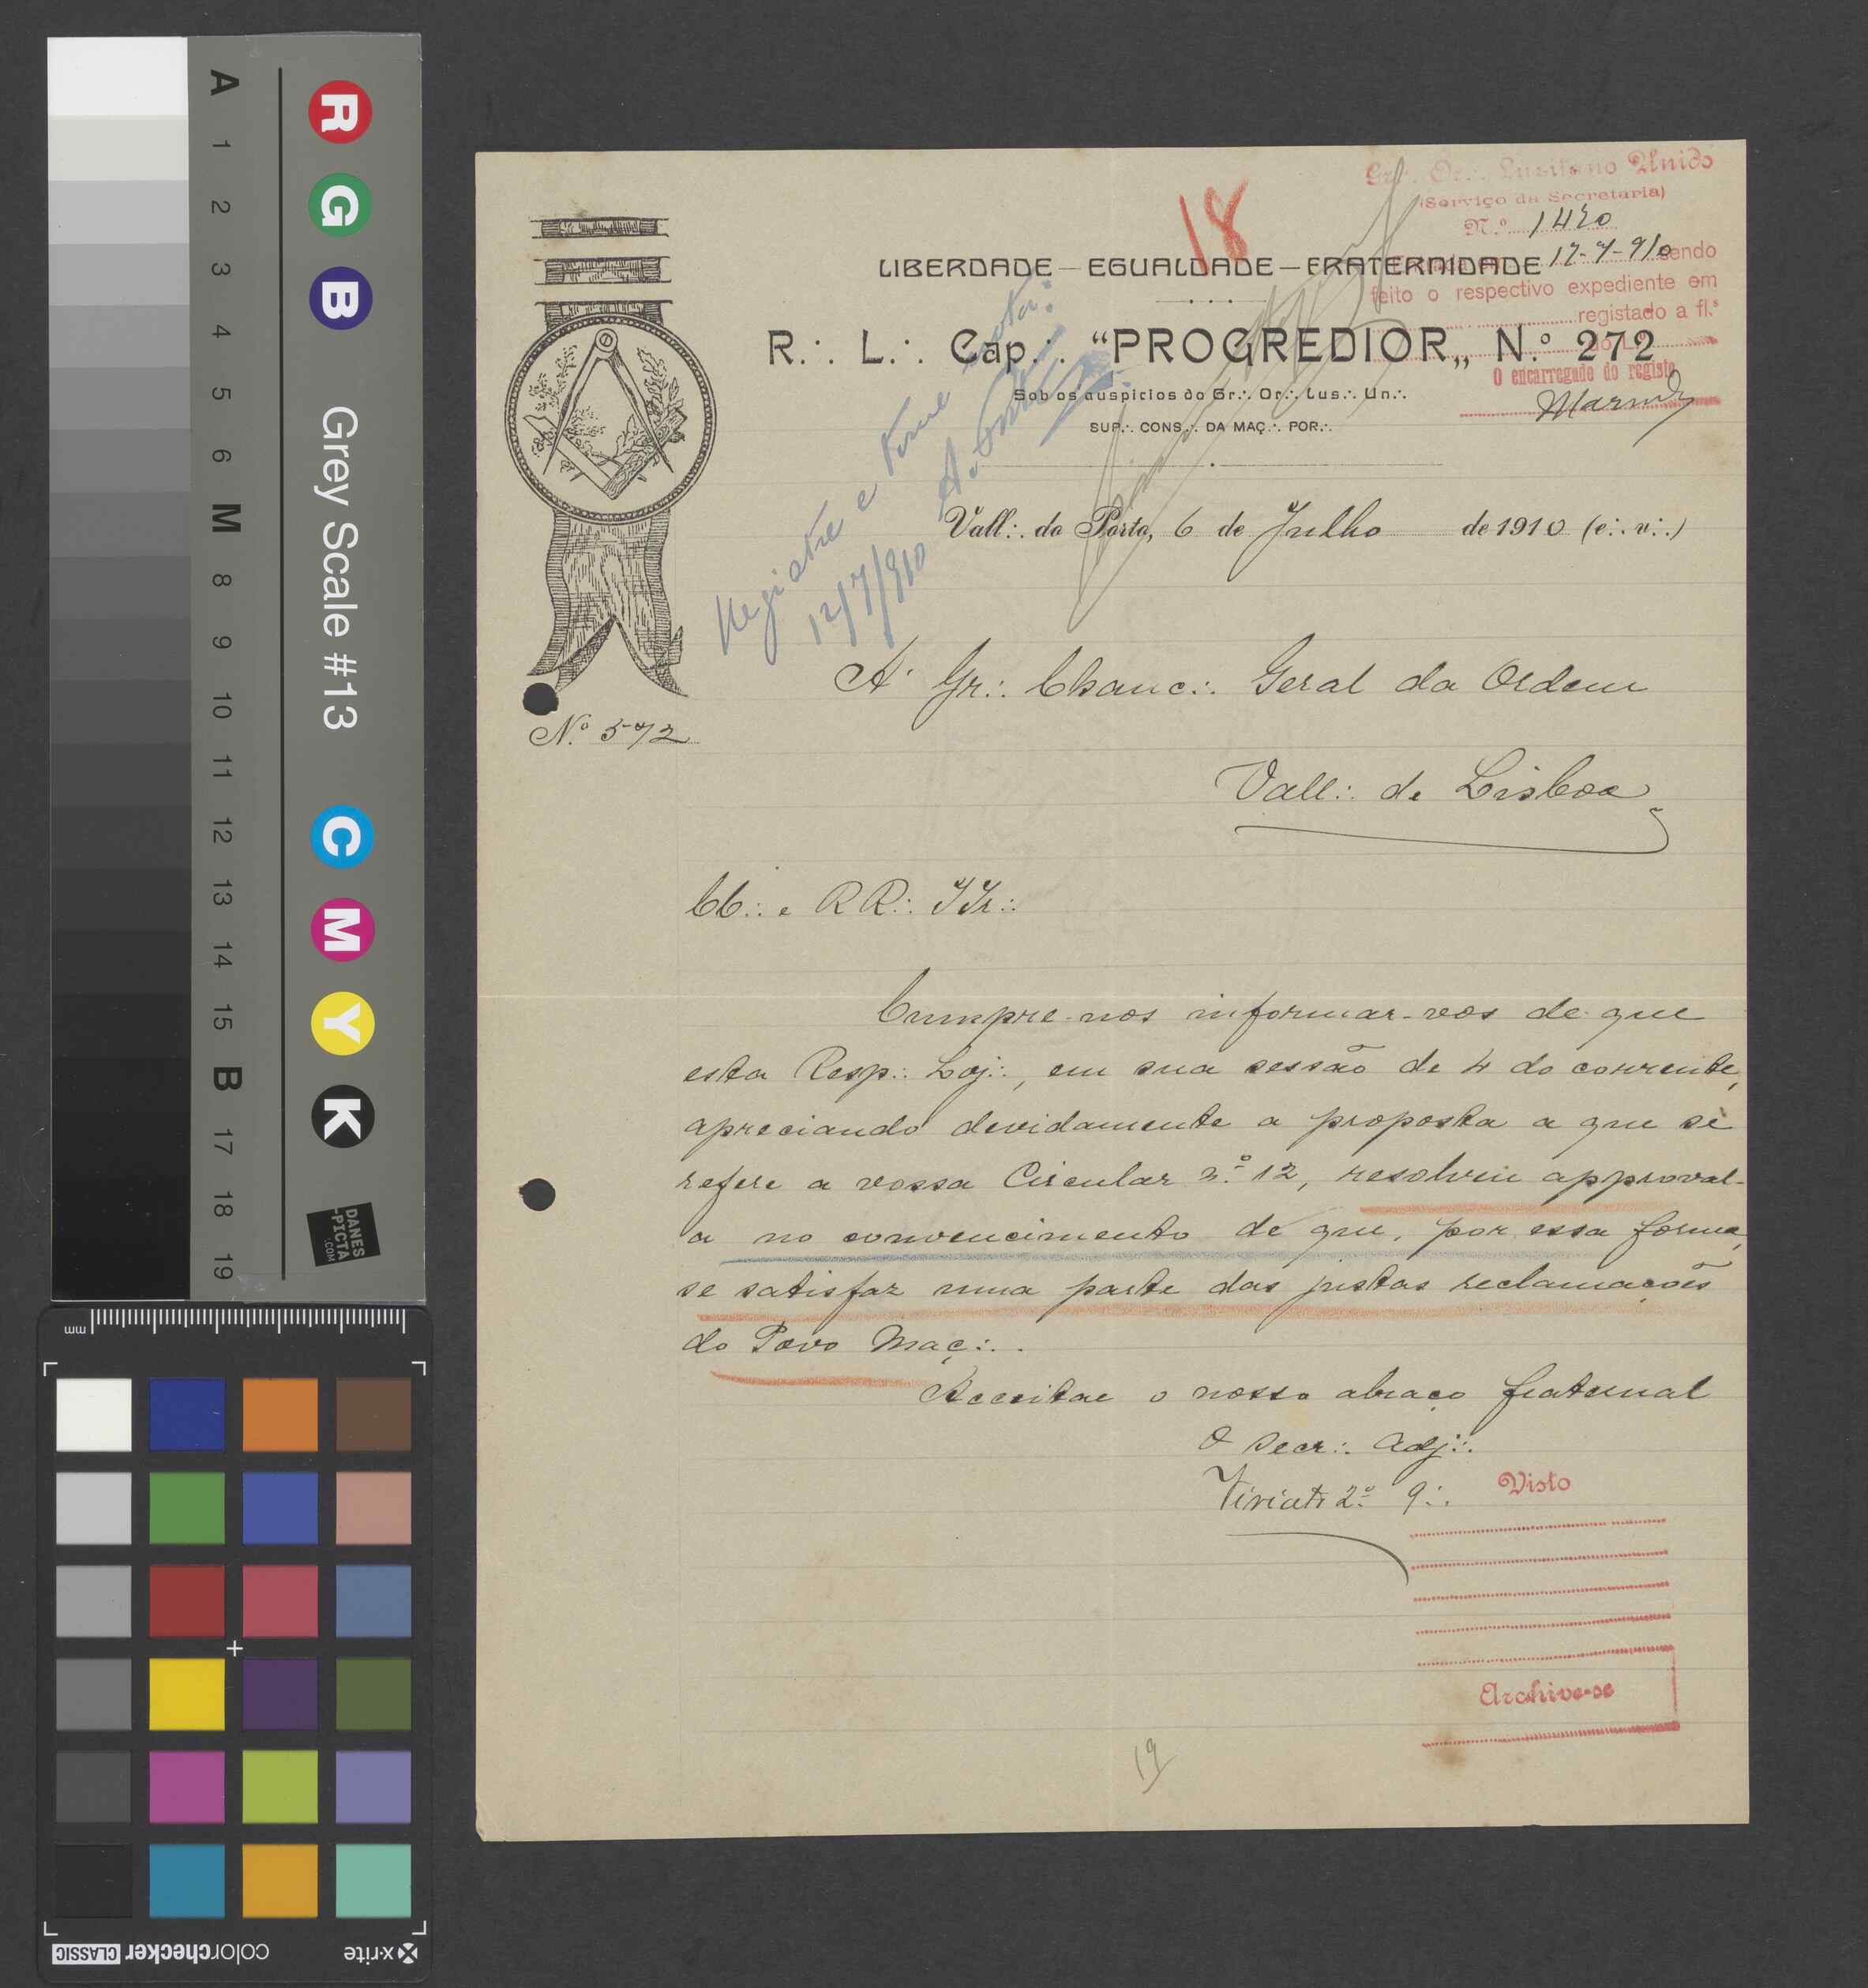 18
Gr∴ Or∴ Luzitano Unido
(Serviço da Secretaria)
N.º 1420
12-7-910 sendo
feito o respectivo expediente em
registado a fl.ˢ
O encarregado do registo
LIBERDADE — EGUALDADE — FRATERNIDADE
R∴ L∴ Cap∴ “PROGREDIOR„ N.º 272
Sob os auspicios do Gr∴ Or∴ Lus∴ Un∴
SUP∴ CONS∴ DA MAÇ∴ POR∴
Registre e tome nota:
12/7/910
Vall∴ do Porto, 6 de Julho de 1910 (e∴ v∴)
A' Gr∴ Chanc∴ Geral da Ordem
N.º 572
Vall∴ de Lisboa
CC∴ e RR∴ IIr∴
Cumpre-nos informar-vos de que
esta Resp∴ Loj∴, em sua sessão de 4 do corrente,
apreciando devidamente a proposta a que se
refere a vossa Circular n.º 12, resolveu approval-
a no convencimento de que, por essa forma,
se satisfaz uma parte das justas reclamações
do Povo Maç∴.
Acceitae o nosso abraço fraternal
O Secr∴ Adj∴
Viriato 2.º 9∴
Visto
Archive-se
19
A
1
2
3
4
5
6
M
8
9
10
11
12
13
14
15
B
17
18
19
R G B
Grey Scale #13
C M Y K
DANES
-PICTA
.COM
mm
x-rite
colorchecker CLASSIC